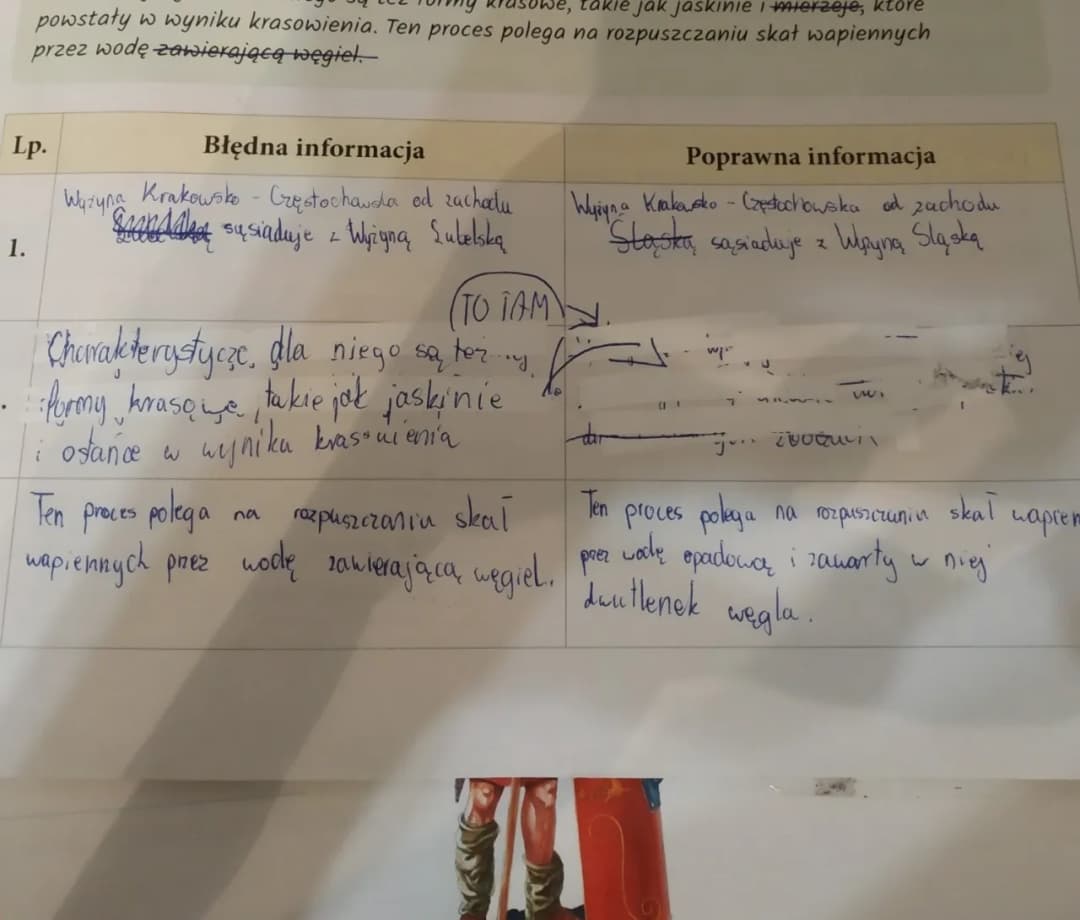 krasowe, takie jak jaskinie i mierzeje, które
powstały w wyniku krasowienia. Ten proces polega na rozpuszczaniu skał wapiennych
przez wodę zawierającą węgiel.
Lp. Błędna informacja Poprawna informacja
1.
Wyżyna Krakowsko - Częstochowska od zachodu
sąsiaduje z Wyżyną Lubelską
Wyżyna Krakowsko - Częstochowska od zachodu
Śląską sąsiaduje z Wyżyną Śląską
TO TAM
dla niego są też
formy krasowe, takie jak jaskinie
i ostańce w wyniku krasowienia
Ten proces polega na rozpuszczaniu skał
wapiennych przez wodę zawierającą węgiel.
Ten proces polega na rozpuszczaniu skał wapien
przez wodę opadową i zawarty w niej
dwutlenek węgla.